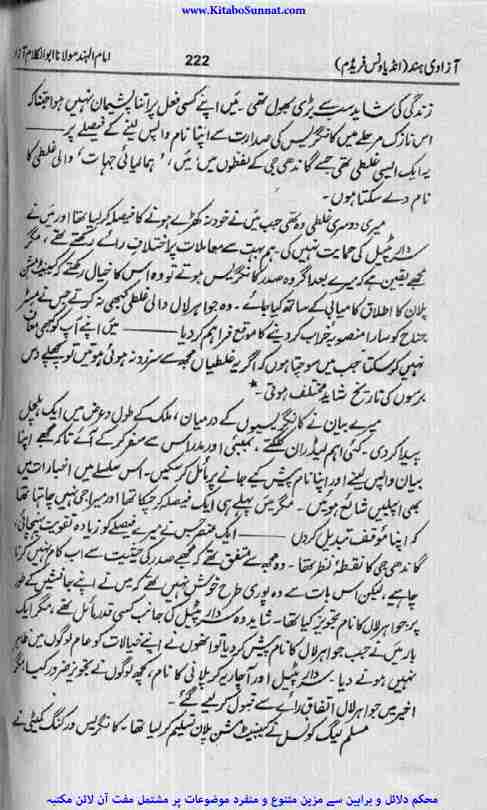 www.KitaboSunnat.com
آزادی ہند (انڈیا ونس فریڈم) 222 امام الہند مولانا ابوالکلام آزاد
زندگی کی شاید سب سے بڑی بھول تھی۔ میں اپنے کسی فعل پر اتنا پشیمان نہیں ہوا جتنا کہ
اس نازک مرحلے میں کانگریس کی صدارت سے اپنا نام واپس لینے کے فیصلے پر ——
یہ ایک ایسی غلطی تھی جسے گاندھی جی کے لفظوں میں، میں، 'ہمالیائی جہات' والی غلطی کا
نام دے سکتا ہوں۔
میری دوسری غلطی وہ تھی جب میں نے خود نہ کھڑے ہونے کا فیصلہ کر لیا تھا اور میں نے
سردار پٹیل کی حمایت نہیں کی۔ ہم بہت سے معاملات پر اختلاف رائے رکھتے تھے، مگر
مجھے یقین ہے کہ میرے بعد اگر وہ صدر کانگریس ہوتے تو وہ اس کا خیال رکھتے کہ کیبنٹ مشن
پلان کا اطلاق کامیابی کے ساتھ کیا جائے۔ وہ جواہر لال والی غلطی کبھی نہ کرتے جس نے مسٹر
جناح کو سارا منصوبہ خراب کر دینے کا موقع فراہم کر دیا —— میں اپنے آپ کو کبھی معاف
نہیں کر سکتا جب میں سوچتا ہوں کہ اگر یہ غلطیاں مجھ سے سرزد نہ ہوئی ہوتیں تو پچھلے دس
برسوں کی تاریخ شاید مختلف ہوتی۔*
میرے بیان نے کانگریسیوں کے درمیان، ملک کے طول و عرض میں ایک ہلچل
پیدا کر دی۔ کئی اہم لیڈران کلکتے، بمبئی اور مدراس سے سفر کر کے آئے تاکہ مجھے اپنا
بیان واپس لینے اور اپنا نام پیش کیے جانے پر مائل کر سکیں۔ اس سلسلے میں اخبارات میں
بھی اپیلیں شائع ہوئیں۔ مگر میں پہلے ہی ایک فیصلہ کر چکا تھا اور میرا جی نہیں چاہتا تھا
کہ اپنا موقف تبدیل کر دوں —— ایک عنصر جس نے میرے فیصلے کو زیادہ تقویت پہنچائی،
گاندھی جی کا نقطۂ نظر تھا۔ وہ مجھ سے متفق تھے کہ مجھے صدر کی حیثیت سے اب کام نہیں کرنا
چاہیے، لیکن اس بات سے وہ پوری طرح خوش نہیں تھے کہ میں نے اپنے جانشین کے طور
پر جواہر لال کا نام تجویز کیا تھا۔ شاید وہ سردار پٹیل کی جانب کسی قدر مائل تھے، مگر ایک
بار میں نے جب جواہر لال کا نام پیش کر دیا تو انھوں نے اپنے خیالات کو عام لوگوں میں ظاہر
نہیں ہونے دیا۔ سردار پٹیل اور آچاریہ کرپلانی کا نام، کچھ لوگوں نے تجویز ضرور کیا، مگر
اخیر میں جواہر لال اتفاق رائے سے قبول کر لیے گئے۔
مسلم لیگ کونسل نے کیبنٹ مشن پلان تسلیم کر لیا تھا۔ کانگریس ورکنگ کمیٹی نے
محکم دلائل و براہین سے مزین متنوع و منفرد موضوعات پر مشتمل مفت آن لائن مکتبہ